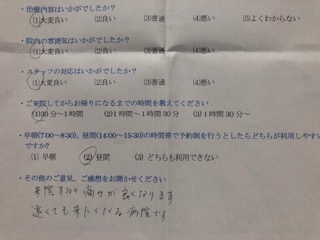 ・治療内容はいかがでしたか？
(1)大変良い (2)良い (3)普通 (4)悪い (5)よくわからない
・院内の雰囲気はいかがでしたか？
(1)大変良い (2)良い (3)普通 (4)悪い
・スタッフの対応はいかがでしたか？
(1)大変良い (2)良い (3)普通 (4)悪い
・ご来院してからお帰りになるまでの時間を教えてください
(1)30分～1時間 (2)1時間～1時間30分 (3)1時間30分～
・早朝(7:00～8:30)、昼間(14:00～15:30)の時間帯で予約制を行うとしたらどちらが利用しやすい
ですか？
(1) 早朝 (2) 昼間 (3) どちらも利用できない
・その他のご意見、ご感想をお聞かせください
来院すると痛みが良くなります
遠くても来たくなる病院です